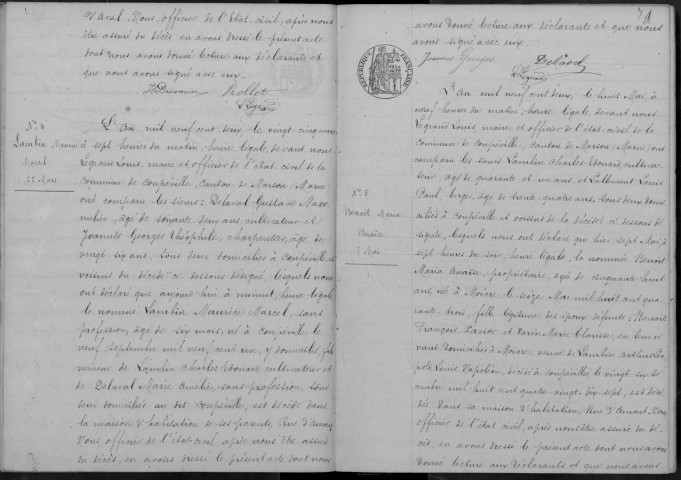 d'aval. Nous, officier de l'état civil, après nous
être assuré du décès, en avons dressé le présent acte
dont nous avons donné lecture aux déclarants et
que nous avons signé avec eux.
Rollet
Legrand
N° 4
Lambin Maurice
Marcel
25 Mars
L'An mil neuf cent deux, le vingt cinq mars
à sept heures du matin, heure légale, devant nous
Legrand Louis, maire et officier de l'état civil de la
commune de Coupéville, canton de Marson (Marne)
ont comparu les sieurs: Delaval Gustave Maxi-
milien, âgé de soixante deux ans, cultivateur et
Joannès Georges Théophile, charpentier, âgé de
vingt six ans, tous deux domiciliés à Coupéville, et
voisins du décédé ci dessous désigné, lesquels nous
ont déclaré que aujourd'hui à minuit, heure légale
le nommé Lambin Maurice Marcel, sans
profession, âgé de six mois, né à Coupéville le
neuf septembre mil neuf cent un, y domicilié, fils
mineur de Lambin Charles Edouard, cultivateur et
de Delaval Marie Amélie, sans profession, tous
deux domiciliés au dit Coupéville, est décédé dans
la maison d'habitation de ses parents, Rue d'Amont
Nous officier de l'état-civil, après nous être assuré
du décès, en avons dressé le présent acte dont nous
avons donné lecture aux déclarants et que nous
avons signé avec eux
Joannes Georges Delaval
Legrand
RÉPUBLIQUE FRANÇAISE
N° 5
Benoit Maria
Anaïse
7 Mai
L'An mil neuf cent deux, le huit Mai, à
neuf heures du matin, heure légale, devant nous
Legrand Louis, maire et officier de l'état civil de la
commune de Coupéville, canton de Marson (Marne) ont
comparu les sieurs Lambin Charles Edouard, cultiva-
teur, âgé de quarante et un ans, et Lallement Louis
Paul, berger, âgé de trente quatre ans, tous deux domi-
ciliés à Coupéville et voisins de la décédée ci dessous dé-
signée, lesquels nous ont déclaré que hier sept Mai, à
sept heures du soir, heure légale, la nommée Benoit
Maria Anaïse, propriétaire, âgée de cinquante-huit
ans, né à Moivre, le seize Mai mil huit cent qua-
rante trois, fille légitime des époux défunts: Benoit
François Xavier et Varin Marie Clarisse, en leur vi-
vant domiciliés à Moivre, veuve de Lambin Arthur Léo-
pold Louis Napoléon, décédé à Coupéville, le vingt-six
mil huit cent quatre-vingt-dix-sept, est décé-
dée dans sa maison d'habitation, Rue d'Amont. Nous
officier de l'état civil, après nous être assuré du dé-
cès, en avons dressé le présent acte dont nous avons
donné lecture aux déclarants et que nous avons